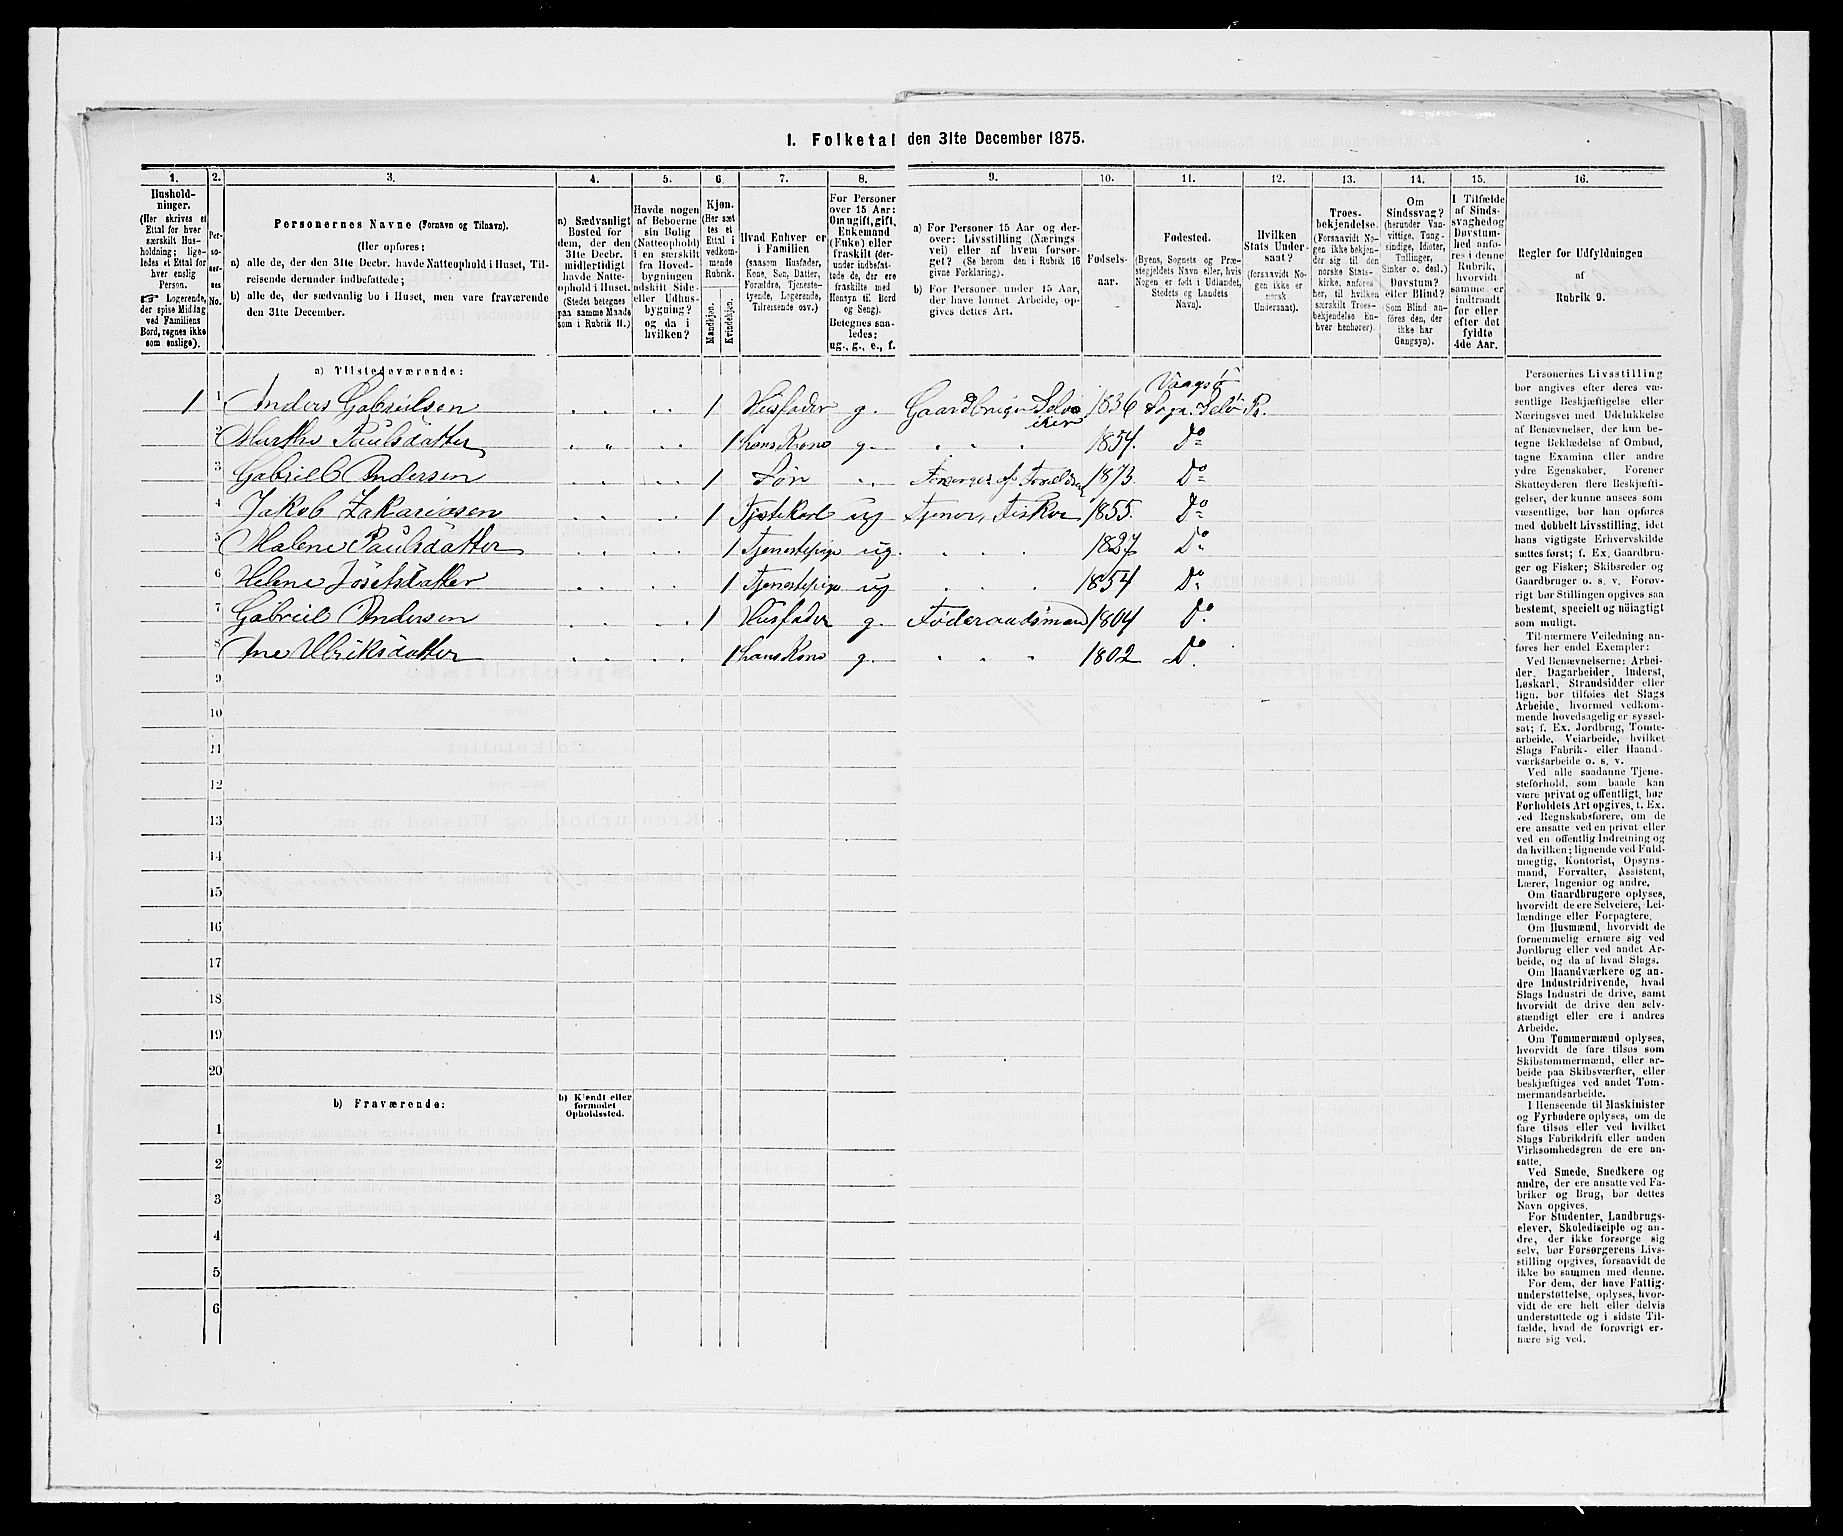 1. Folketal den 31te December 1875.
1. 2. 3. 4. 5. 6. 7. 8. 9. 10. 11. 12. 13. 14. 15. 16.
Hushold-
ninger.
(Her skrives et
Ettal for hver
særskilt Hus-
holdning; lige-
ledes et Ettal for
hver enslig
Person.
☞ Logerende,
der spise Middag
ved Familiens
Bord, regnes ikke
som enslige).
Per-
so-
ner-
nes
No.
Personernes Navne (Fornavn og Tilnavn).
(Her opføres:
a) alle de, der den 31te Decbr. havde Natteophold i Huset, Til-
reisende derunder indbefattede;
b) alle de, der sædvanlig bo i Huset, men vare fraværende
den 31te December.
a) Sædvanligt
Bosted for
dem, der den
31te Decbr.
midlertidigt
havde Natte-
ophold i Huset.
(Stedet betegnes
paa samme Maade
som i Rubrik 11.)
Havde nogen
af Beboerne
sin Bolig
(Natteophold)
i en særskilt
fra Hoved-
bygningen
adskilt Side-
eller Udhus-
bygning?
og da i
hvilken?
Kjøn.
(Her sæt
tes et
Ettal i
vedkom-
mende
Rubrik.
Mandkjøn.
Kvindekjøn.
Hvad Enhver er
i Familien
(saasom Husfader,
Kone, Søn, Datter,
Forældre, Tjeneste-
tyende, Logerende,
Tilreisende osv.)
For Personer
over 15 Aar:
Om ugift, gift,
Enkemand
(Enke) eller
fraskilt (der-
under indbefat-
tede de, der ere
fraskilte med
Hensyn til Bord
og Seng).
Betegnes saa-
ledes:
ug., g., e., f.
a) For Personer 15 Aar og der-
over: Livsstilling (Nærings
vei) eller af hvem forsør-
get? (Se herom den i Rubrik 16
givne Forklaring).
b) For Personer under 15 Aar,
der have lønnet Arbeide, op-
gives dettes Art.
Fødsels-
aar.
Fødested.
(Byens, Sognets og Præ-
stegjeldets Navn eller, hvis
Nogen er født i Udlandet,
Stedets og Landets
Navn).
Hvilken
Stats Under-
saat?
(forsaavidt No-
gen ikke er
norsk
Undersaat).
Troes-
bekjendelse.
(Forsaavidt No-
gen ikke bekjen-
der sig til den
norske Stats-
kirke, anføres
her, til hvilken
særskilt Troes-
bekjendelse En-
hver henhører).
Om
Sindssvag?
(herunder Van-
vittige, Tung-
sindige, Idioter,
Tullinger,
Sinker o. desl.)
Døvstum?
eller Blind?
Som Blind an-
føres den, der
ikke har
Gangsyn).
I Tilfælde
af Sinds-
svaghed og
Døvstum-
hed anfø-
res i denne
Rubrik,
hvorvidt
samme er
indtraadt
før eller
efter det
fyldte
4de Aar.
Regler for Udfyldningen
af
Rubrik 9.
a) Tilstedeværende:
Vaagsø
1 1 Anders Gabrielsen 1 Husfader g. Gaardbruger Selv- 1836 Sogn. Selø Pr.
eier
2 Marthe Paulsdatter 1 hans Kone g. 1854. Do
3 Gabriel Andersen 1 Søn Forsørges af 1873. Do
4 Jakob Zakariasen 1 ug Tjener, Fisker 1855. Do
5 Malene Paulsdatter 1 Tjenestepige ug. 1827 Do
6 Helene Josefsdatter 1 Tjenestepige ug 1854 Do
7 Gabriel Andersen 1 Husfader g. Føderaadsmand 1804 Do.
8 Ane Ulriksdatter 1 hans Kone g. 1802 Do.
9
10
11
12
13
14
15
16
17
18
19
20
b) Fraværende:
b) Kjendt eller
formodet
Opholdssted.
1
2
3
4
5
6
Personernes Livsstilling
bør angives efter deres væ-
sentlige Beskjæftigelse eller
Næringsvei med Udelukkelse
af Benævnelser, der kun be-
tegne Beklædelse af Ombud,
tagne Examina eller andre
ydre Egenskaber. Forener
Skatteyderen flere Beskjæfti-
gelser, der kunne ansees som
væsentlige, bør han opføres
med dobbelt Livsstilling, idet
hans vigtigste Erhvervskilde
sættes først; f. Ex. Gaardbru-
ger og Fisker; Skibsreder og
Gaardbruger o. s. v. Forøv-
rigt bør Stillingen opgives saa
bestemt, specielt og nöiagtigt
som muligt.
Til nærmere Veiledning an-
føres her endel Exempler:
Ved Benævnelserne: Arbei-
der, Dagarbeider, Inderst,
Løskarl, Strandsidder eller
lign. bør tilføies det Slags
Arbeide, hvormed vedkom-
mende hovedsagelig er syssel-
sat; f. Ex. Jordbrug, Tomte-
arbeide, Veiarbeide, hvilket
Slags Fabrik- eller Haand-
værksarbeide o. s. v.
Ved alle saadanne Tjene-
steforhold, som baade kan
være privat og offentligt, bør
Forholdets Art opgives, t. Ex.
ved Regnskabsførere, om de
ere ansatte ved en privat eller
ved en offentlig Indretning og
da hvilken; lignende ved Fuld-
mægtig, Kontorist, Opsyns-
mand, Forvalter, Assistent,
Lærer, Ingeniør og andre.
Om Gaardbrugere oplyses,
hvorvidt de ere Selveiere, Lei-
lændinge eller Forpagtere.
Om Husmænd, hvorvidt de
fornemmelig ernære sig ved
Jordbrug eller ved andet Ar-
beide, og da af hvad Slags.
Om Haandværkere og an-
dre Industridrivende, hvad
Slags Industri de drive, samt
hvorvidt de drive den selv-
stændigt eller ere i andres
Arbeide.
Om Tømmermænd oplyses,
hvorvidt de fare tilsøs som
Skibstømmermænd, eller ar-
beide paa Skibsværfter, eller
beskjæftiges ved andet Tøm-
mermandsarbeide.
I Henseende til Maskinister
og Fyrbødere oplyses, om de
fare tilsøs eller ved hvilket
Slags Fabrikdrift eller anden
Virksomhedsgren de ere an-
satte.
Ved Smede, Snedkere og
andre, der ere ansatte ved Fa-
briker og Brug, bør dettes
Navn opgives.
For Studenter, Landbrugs-
elever, Skoledisciple og an-
dre, der ikke forsørge sig
selv, bør Forsørgerens Livs-
stilling opgives, forsaavidt de
ikke bo sammen med denne.
For dem, der have Fattig-
understøttelse, oplyses, hvor-
vidt de ere helt eller delvis
understøttede og i sidste Til-
fælde, hvad de forøvrigt er-
nære sig ved.